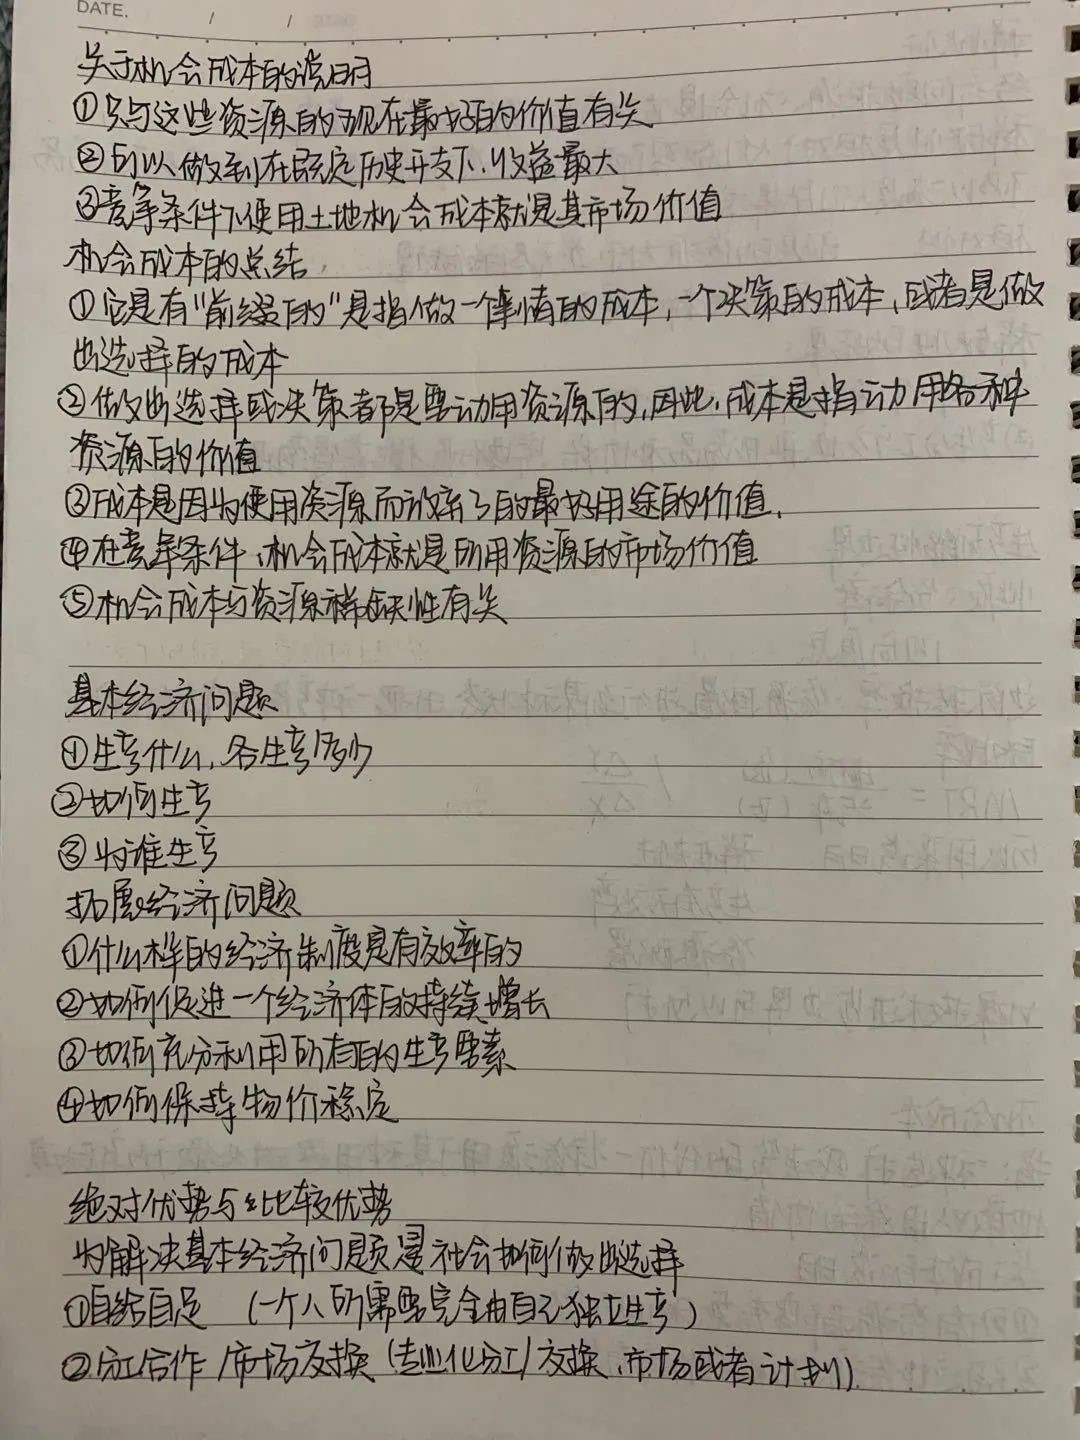 DATE. / /
关于机会成本的说明
①只与这些资源的现在最好的价值有关
②所以做到在既定历史开支下,收益最大
③竞争条件下使用土地机会成本就是其市场价值
机会成本的总结,
①它是有"前缀的"是指做一件事情的成本,一个决策的成本,或者是做
出选择的成本
②做出选择或决策者都是要动用资源的,因此,成本是指动用各种
资源的价值
③成本是因为使用资源而放弃了的最好用途的价值.
④在竞争条件,机会成本就是所用资源的市场价值
⑤机会成本与资源稀缺性有关
基本经济问题
①生产什么,各生产多少
②如何生产
③为谁生产
拓展经济问题
①什么样的经济制度是有效率的
②如何促进一个经济体的持续增长
③如何充分利用所有的生产要素
④如何保持物价稳定
绝对优势与比较优势
为解决基本经济问题是社会如何做出选择
①自给自足 (一个人所需要完全由自己独立生产)
②分工合作/市场交换(专业化分工/交换,市场或者计划).